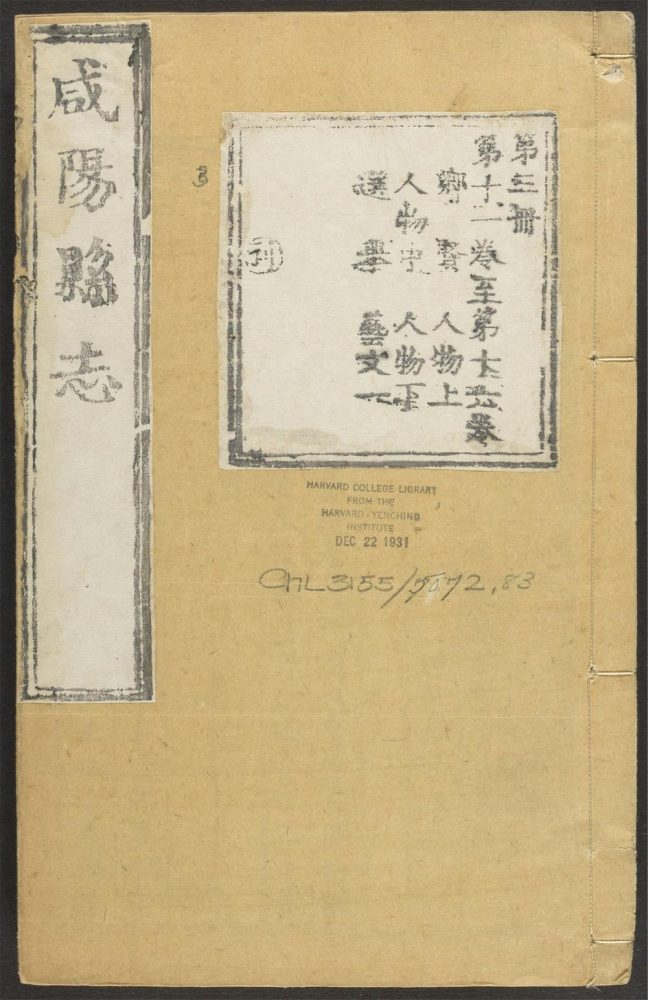 咸陽縣志
第三冊
第十二卷至第十六卷
鄉賢 人物上
人物中 人物下
選舉 藝文一
3
HARVARD COLLEGE LIBRARY
FROM THE
HARVARD-YENCHING
INSTITUTE
DEC 22 1931